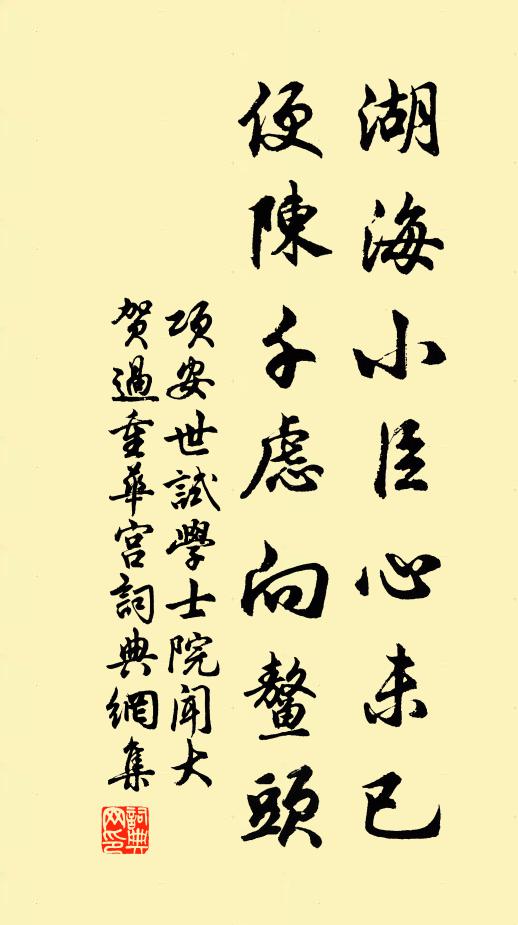 湖海小臣心未已
便陳千慮向鰲頭
項安世試學士院聞大
賀過重華宮詞典網集
詞典網印